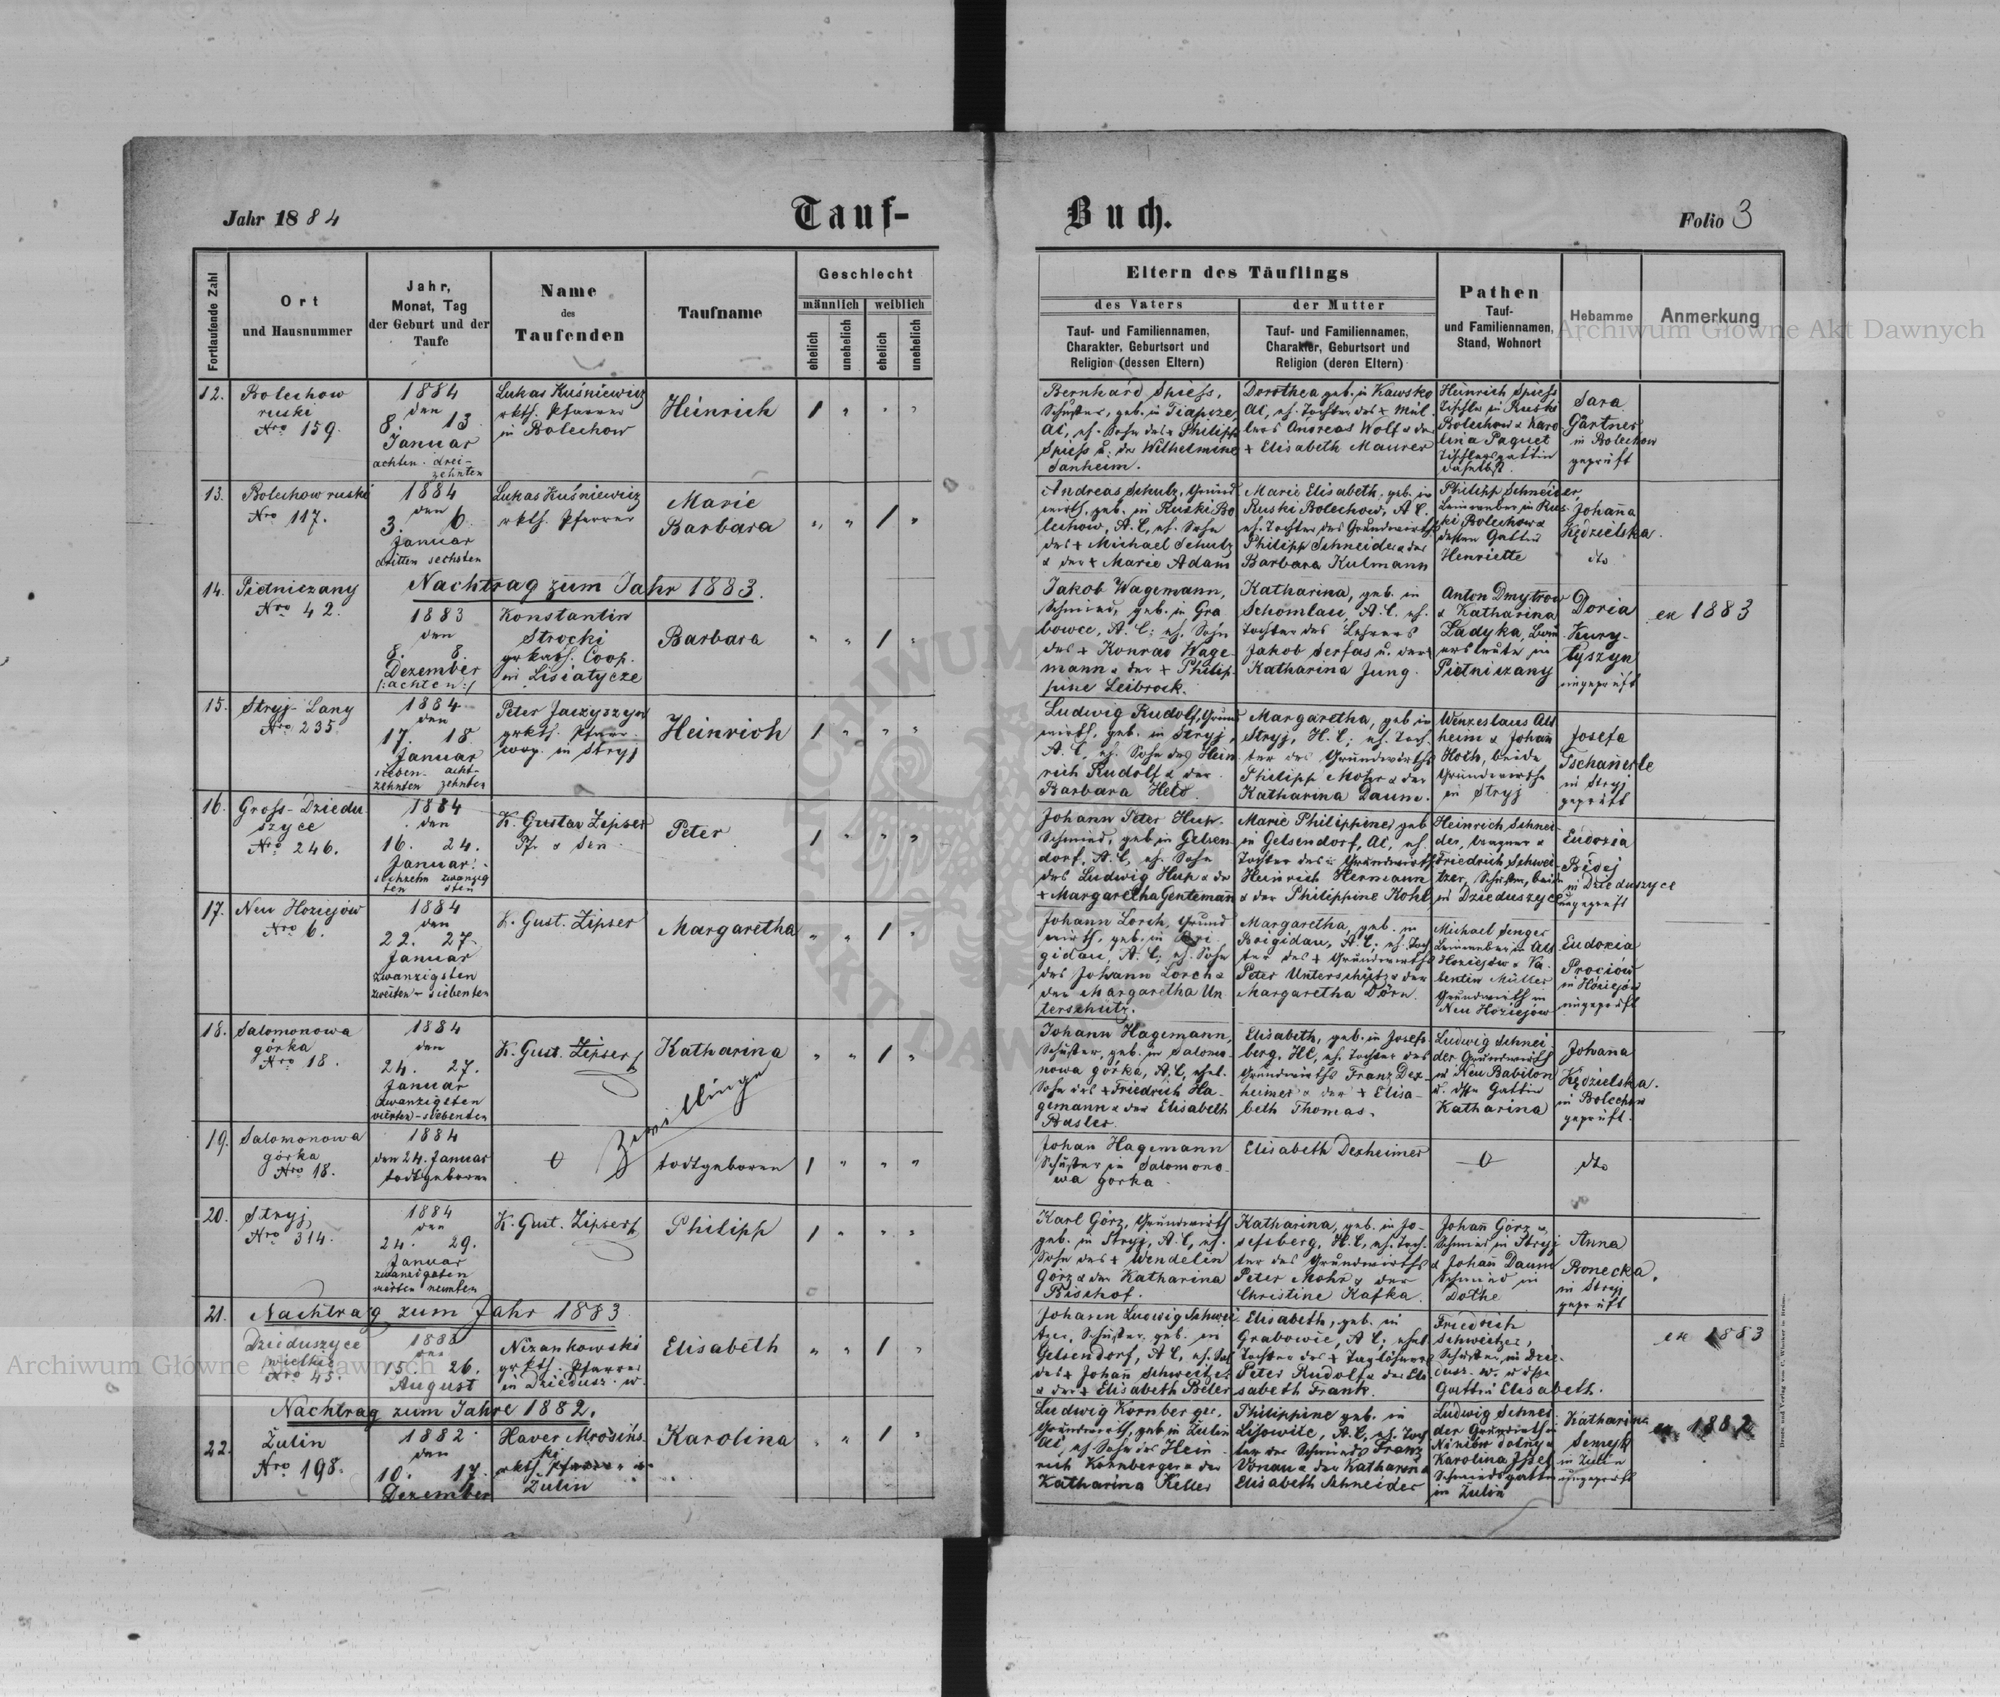 Jahr 1884
Tauf-
Buch.
Folio 3
Fortlaufende Zahl
Ort
und Hausnummer
Jahr,
Monat, Tag
der Geburt und der
Taufe
Name
des
Taufenden
Taufname
Geschlecht
männlich
weiblich
ehelich
unehelich
ehelich
unehelich
Eltern des Täuflings
des Vaters
Tauf- und Familiennamen,
Charakter, Geburtsort und
Religion (dessen Eltern)
der Mutter
Tauf- und Familiennamen,
Charakter, Geburtsort und
Religion (deren Eltern)
Pathen
Tauf-
und Familiennamen,
Stand, Wohnort
Hebamme
Anmerkung
12.
Bolechow
ruski
Nro 159.
1884
den
8. 13
Januar
achten. drei-
zehnten
Lukas Kuśniewicz
rkth. Pfarrer
in Bolechow
Heinrich
1 " " "
Bernhard Spiess,
Schuster, geb. in
AC, eh. Sohn des + Philipp
Spiess u. der Wilhelmine
Sanheim.
Dorothea geb. in Kawsko
AC, eh. Tochter des + Mül-
lers Andreas Wolf u der
+ Elisabeth Maurer
Heinrich Spiess
Tischler in Ruski
Bolechow u Karo
lina Paquet
Tischlersgattin
daselbst.
Sara
Gärtner
in Bolechow
geprüft
13.
Bolechow ruski
Nro 117.
1884
den
3. 6.
Januar
dritten sechsten
Lukas Kuśniewicz
rkth. Pfarrer
Marie
Barbara
" " 1 "
Andreas Schulz, Grund
wirth, geb. in Ruski Bo
lechow, A.C, eh. Sohn
des + Michael Schulz
u der + Marie Adam
Marie Elisabeth, geb. in
Ruski Bolechow, A.C.
eh. Tochter des Grundwirths
Philipp Schneider u der
Barbara Kulmann
Philipp Schneider,
in Rus-
ki Bolechow u
dessen Gattin
Henriette
Johanna
Kędzielska.
dto
14.
Pietniczany
Nro 42.
Nachtrag zum Jahr 1883.
1883
den
8. 8.
Dezember
/:achten:/
Konstantin
Strocki
grkath. Coop.
in Lisiatycze
Barbara
" " 1 "
Jakob Wagemann,
Schmied, geb. in Gra
bowce, A.C; eh. Sohn
des + Konrad Wage-
mann u der + Philip-
pine Leibrock.
Katharina, geb. in
Schomlau A.C. eh.
Tochter des Lehrers
Jakob Serfas u. der
Katharina Jung.
Anton Dmytrow
u Katharina
Ladyka, Bau
ersleute in
Pietniczany
Doria
Kury-
tyszyn
ungeprüft
ex 1883
15.
Stryj-Lany
Nro 235
1884
den
17. 18.
Januar
sieben- acht-
zehnten zehnten
Peter Jaczyszyn
grkth. Pfarr-
in Stryj
Heinrich
1 " " "
Ludwig Rudolf, Grund
wirth, geb. in Stryj,
A.C, eh. Sohn des Hein
rich Rudolf u der
Barbara Held.
Margaretha, geb in
Stryj, H.C; eh. Toch-
ter des Grundwirths
Philipp Mohr u der
Katharina Daum.
Wenzeslaus Alt
heim u Johann
Hoth, beide
Grundwirthe
in Stryj
Josefa
Tschanerle
in Stryj
geprüft
16.
Gross-Dziedu
szyce
Nro 246.
1884
den
16. 24.
Januar
sechzehn zwanzig
ten sten
K. Gustav Zipser
Pf. u Sen.
Peter
1 " " "
Johann Peter Hup.
Schmied, geb in Gelsen-
dorf, A.C, eh. Sohn
des Ludwig Hup u der
+ Margaretha Gentemann
Marie Philippine, geb
in Gelsendorf, AC, eh.
Tochter des Grundwirths
Heinrich Hermann
u der Philippine Kohl
Heinrich Schnei-
der, u
Friedrich Schwei-
tzer, Schuster, beide
in Dzieduszyce
Eudoxia
in Dzieduszyce
ungeprüft
17.
Neu Hoziejów
Nro 6.
1884
den
22. 27.
Januar
zwanzigsten
zweiten - siebenten
K. Gust. Zipser
Margaretha
" " 1 "
Johann Lorch, Grund
wirth, geb. in Bri
gidau, A.C, eh. Sohn
des Johann Lorch u
der Margaretha Un
terschütz.
Margaretha, geb. in
Brigidau, A.C; eh. Toch
ter des + Grundwirths
Peter Unterschütz u der
Margaretha Dörn.
Michael Senger
in Alt
Hoziejów u Va-
lentin Müller
Grundwirth in
Neu Hoziejów
Eudoxia
Prociów
in Hoziejów
ungeprüft
18.
Salomonowa
górka
Nro 18.
1884
den
24. 27.
Januar
zwanzigsten
vierten - siebenten
K. Gust. Zipser
Katharina
" " 1 "
Johann Hagemann,
Schuster, geb. in Salomo-
nowa górka, A.C, ehel.
Sohn des + Friedrich Ha-
gemann u der Elisabeth
Basler.
Elisabeth, geb. in Josefs
berg, HC, eh. Tochter des
Grundwirths Franz Dex-
heimer u der + Elisa-
beth Thomas.
Ludwig Schnei-
der Grundwirth
in Neu Babilon
u. dssn Gattin
Katharina
Johanna
Kędzielska.
in Bolechow
geprüft.
Zwillinge
19.
Salomonowa
górka
Nro 18.
1884
den 24. Januar
todtgeboren
todtgeboren
1 " " "
Johann Hagemann
Schuster in Salomono-
wa gorka.
Elisabeth Dexheimer
dto
20.
Stryj,
Nro 314.
1884
den
24. 29.
Januar
zwanzigsten
vierten neunten
K. Gust. Zipser
Philipp
1 " " "
Karl Görz, Grundwirth
geb. in Stryj, A.C, eh.
Sohn des + Wendelin
Görz u der Katharina
Bischof.
Katharina, geb. in Jo-
sefsberg, H.C, eh. Toch-
ter des Grundwirths
Peter Mohr u der
Christine Kafka.
Johann Görz
Schmied in Stryj
u Johann Daum
Schmied in
Anna
Bonecka.
in Stryj
geprüft
21.
Nachtrag zum Jahr 1883
Dzieduszyce
wielkie
Nro 45.
1883
den
15. 26.
August
Nizankowski
grkth. Pfarrer
in Dziedusz. w.
Elisabeth
" " 1 "
Johann Ludwig Schwei
tzer, Schuster, geb. in
Gelsendorf, A.C, eh. Sohn
des + Johann Schweitzer
u der + Elisabeth
Elisabeth, geb. in
Grabowie, A.C, ehel
Tochter des + Taglöhners
Peter Rudolf u der Eli
sabeth Frank.
Friedrich
Schweitzer,
Schuster, in Dzie-
dusz. w. u dssn
Gattin Elisabeth.
ex 1883
Nachtrag zum Jahre 1882.
22.
Żulin
Nro 198.
1882
den
10. 17.
Dezember
Xaver Mrosins-
ki
rkth. Pfarrer
Żulin
Karolina
" " 1 "
Ludwig Kornberger,
Grundwirth, geb in Żulin
AC, eh Sohn des Hein-
rich Kornberger u der
Katharina Keller
Philippine geb. in
Lisowice, A.C, eh. Toch
ter des Schmieds Franz
Vonau u der Katharina
Elisabeth Schneider
Ludwig Schnei-
der Grundwirth in
Karolina
Schmiedsgattin
in Żulin
Katharina
in Żulin
ungeprüft
ex 1882
Archiwum Główne Akt Dawnych
Archiwum Główne Akt Dawnych